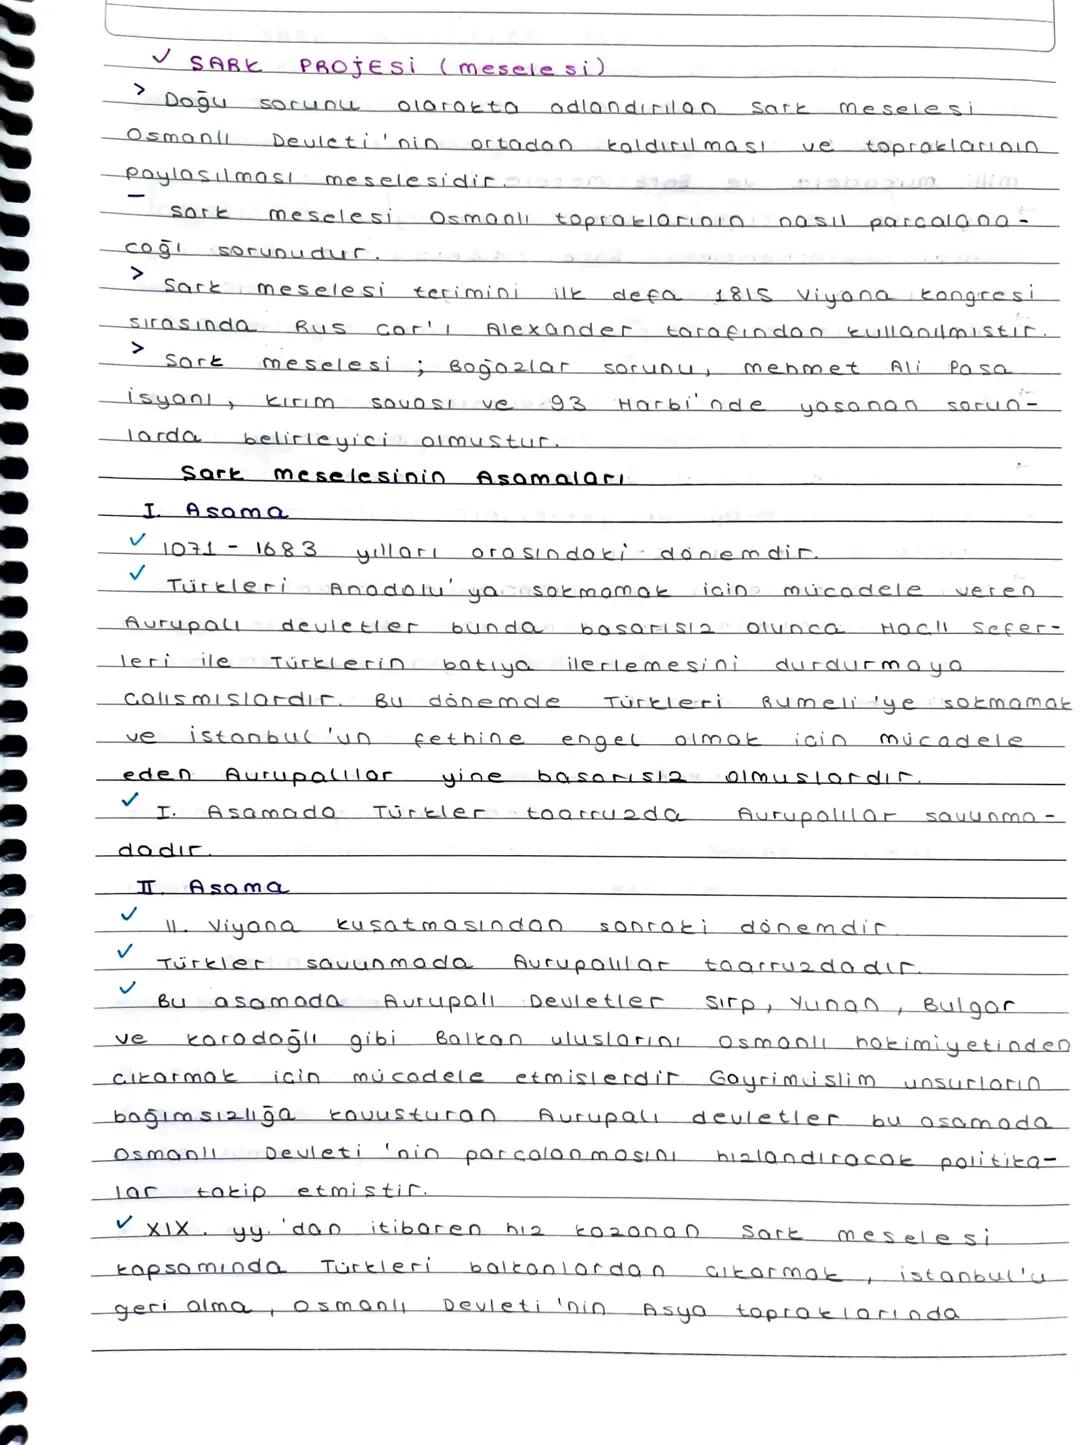 ✓ SARK PROJESİ (meselesi)
> Doğu sorunu olarakta adlandırılan Sark meselesi
Osmanlı Devleti'nin ortadan kaldırılması ve topraklarının
paylasılması meselesidir.
- Sark meselesi Osmanlı topraklarının nasıl parcalana-
cağı sorunudur.
> Sark meselesi terimini ilk defa 1815 Viyana kongresi
sırasında Rus Car'ı Alexander tarafından kullanılmıstır.
> Sark meselesi ; Boğazlar sorunu, mehmet Ali Pasa
isyanı, Kırım savası ve 93 Harbi'nde yasanan sorun-
larda belirleyici olmustur.
Sark meselesinin Asamaları
I. Asama
✓ 1071 - 1683 yılları arasındaki dönemdir.
✓ Türkleri Anadolu'ya sokmamak icin mücadele veren
Avrupalı devletler bunda basarısız olunca Haclı Sefer-
leri ile Türklerin batıya ilerlemesini durdurmaya
calısmıslardır. Bu dönemde Türkleri Rumeli'ye sokmamak
ve istanbul'un fethine engel olmak icin mücadele
eden Avrupalılar yine basarısız olmuslardır.
✓ I. Asamada Türkler taarruzda Avrupalılar savunma-
dadır.
II. Asama
✓ II. Viyana kusatmasından sonraki dönemdir.
✓ Türkler savunmada Avrupalılar taarruzdadır.
✓ Bu asamada Avrupalı Devletler Sırp, Yunan, Bulgar
ve karadağlı gibi Balkan uluslarını Osmanlı hakimiyetinden
cıkarmak icin mücadele etmislerdir. Gayrimüslim unsurların
bağımsızlığa kavusturan Avrupalı devletler bu asamada
Osmanlı Devleti'nin parcalanmasını hızlandıracak politika-
lar takip etmistir.
✓ XIX. yy.'dan itibaren hız kazanan Sark meselesi
kapsamında Türkleri balkanlardan cıkarmak, istanbul'u
geri alma, Osmanlı Devleti'nin Asya topraklarında